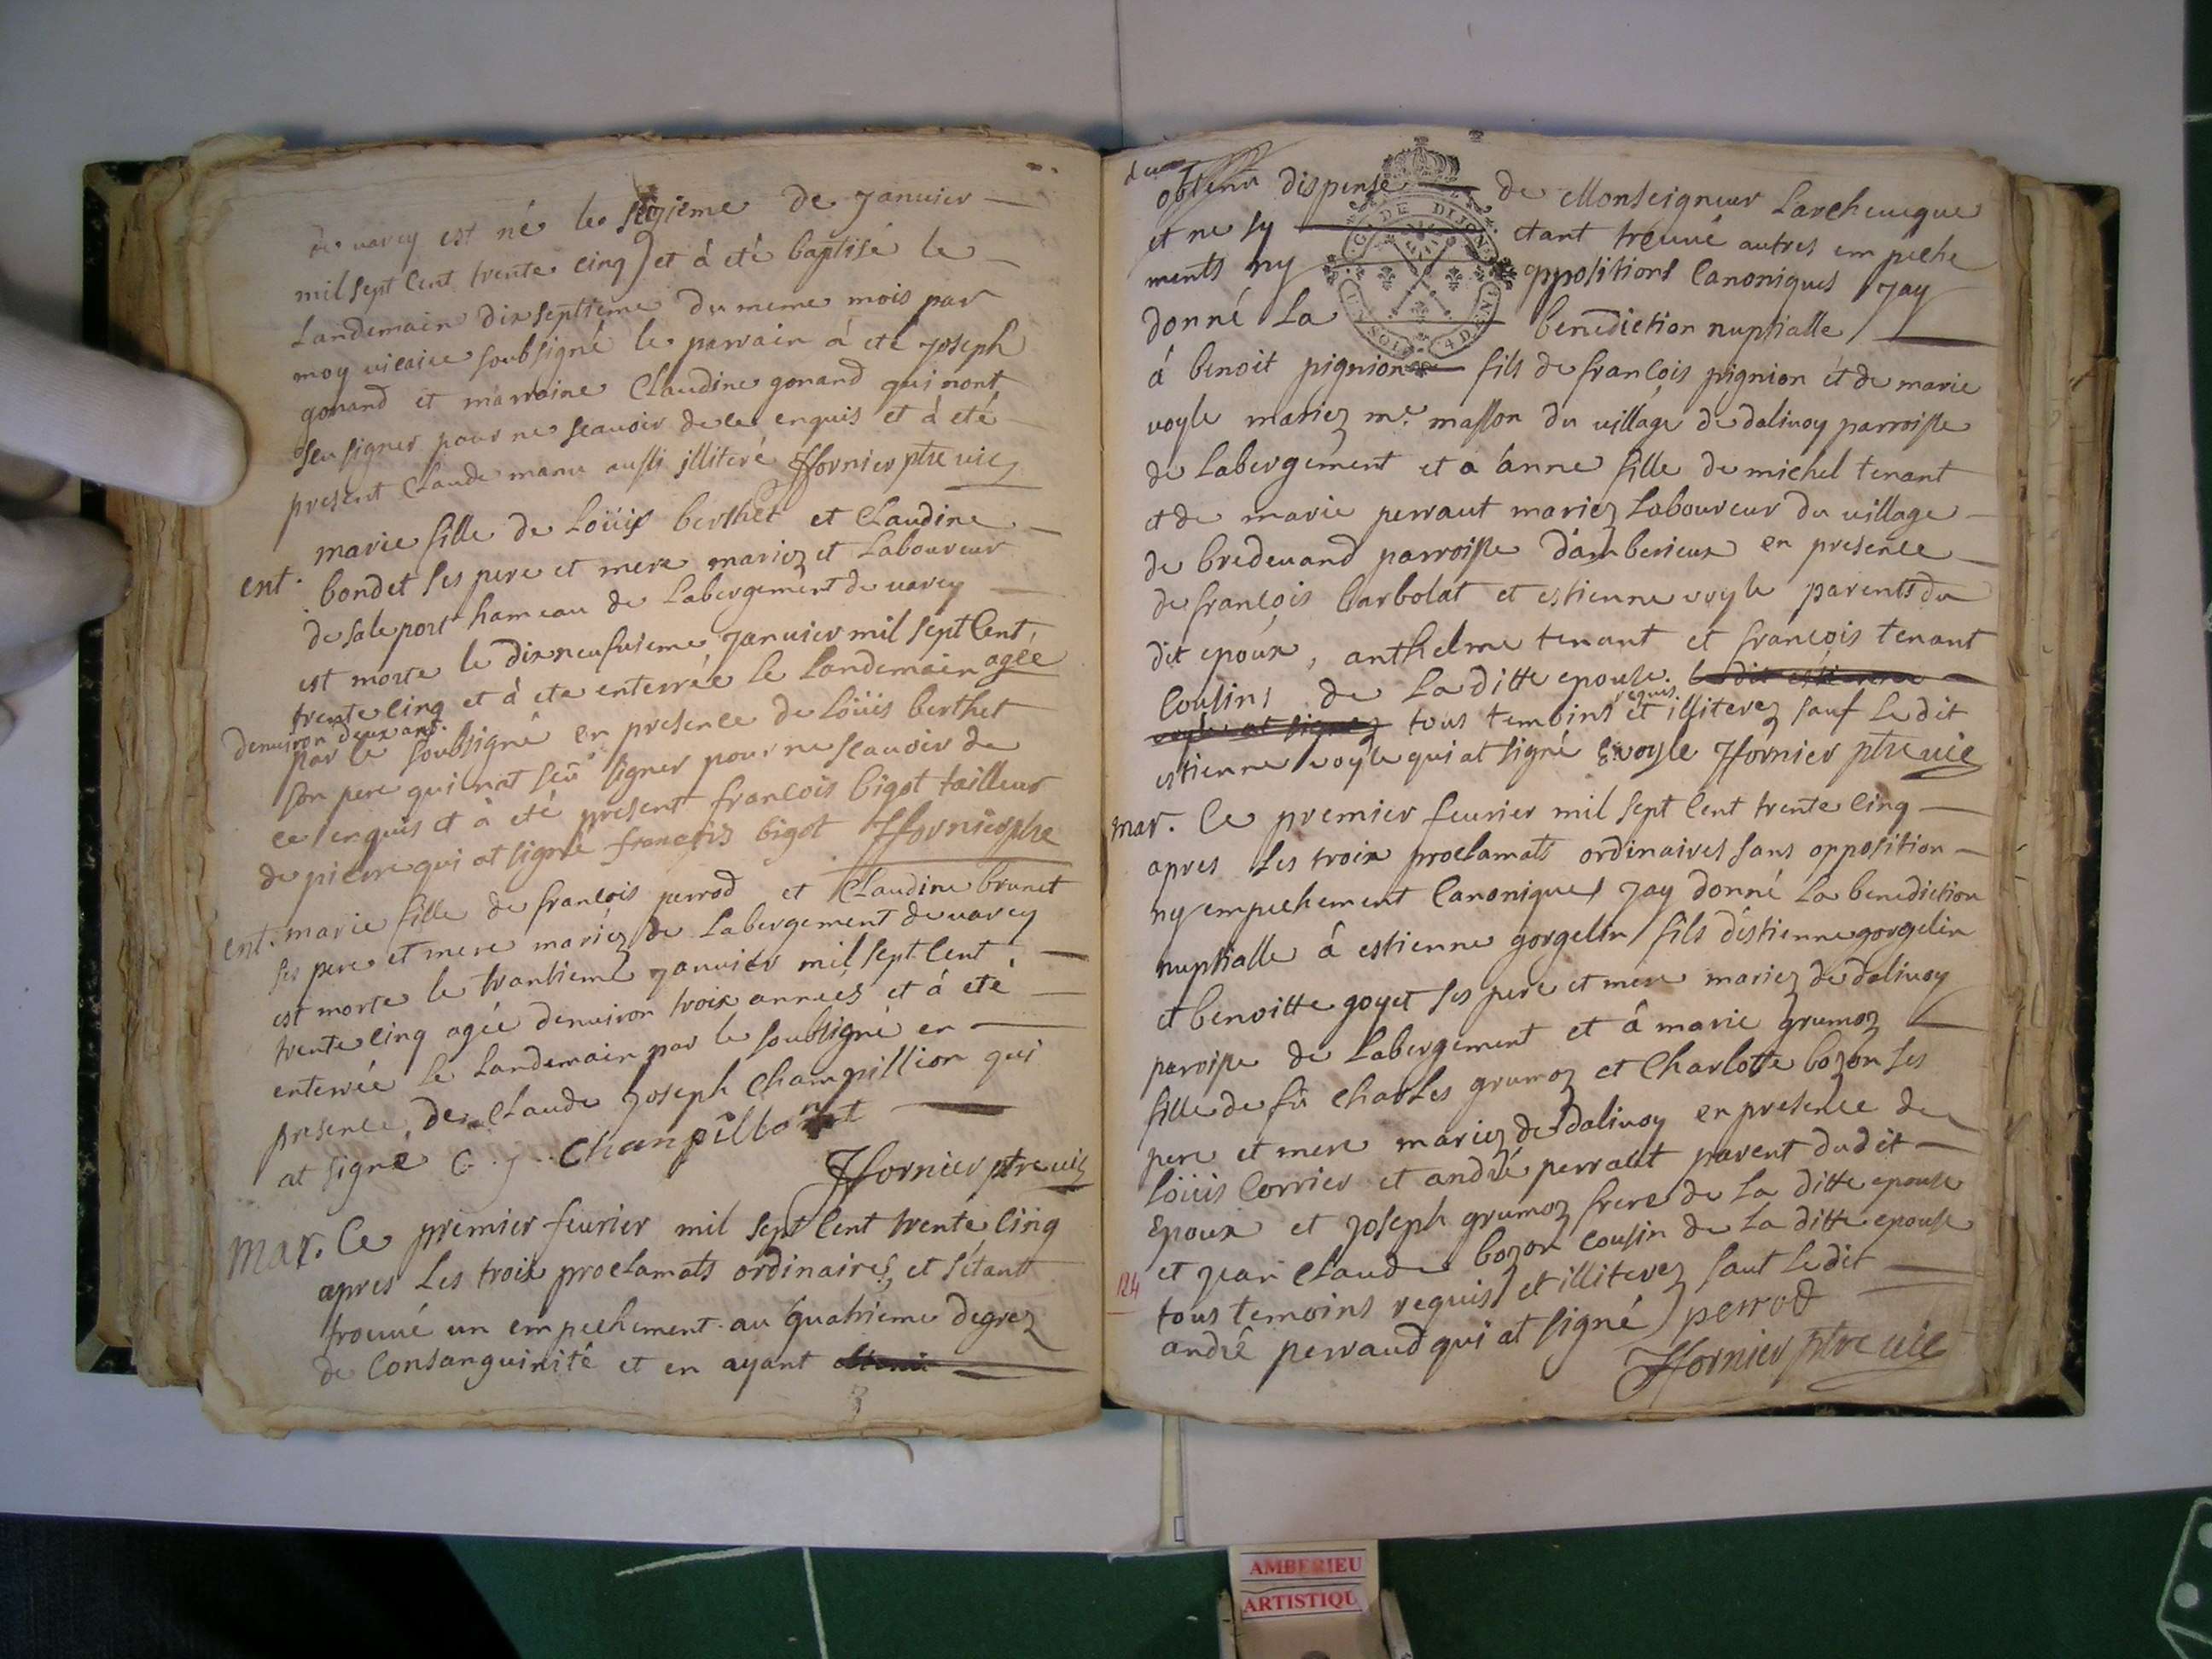 de varey est né le seizieme de Janvier
mil sept cent trente cinq et à eté baptisé le
landemain dix septieme du meme mois par
moy vicaire soubsigné le parrain à eté Joseph
gonand et marraine Claudine gonand qui nont
seu signer pour ne scavoir de ce enquis et à eté
present Claude manu aussi illiteré Jfornier ptre vic
marie fille de Loüis berthet et Claudine
ent. bondet ses pere et mere mariez et Laboureur
de saleport hameau de Labergement de varey
est morte le dixneufvieme Janvier mil sept cent
trente cinq et à ete enterrée le landemain agée
denviron deux ans.
par le soubsigné en presence de Loüis berthet
son pere qui nat seü signer pour ne scavoir de
ce enquis et à eté present francois bigot tailleur
de pierre qui at signé francois bigot Jfornier ptre
ent. marie fille de francois perrod et Claudine brunet
ses pere et mere mariez de Labergement de varey
est morte le trantieme Janvier mil sept cent
trente cinq agée denviron troix années et à eté
enterrée le landemain par le soubsigné en
presence de Claude Joseph Champillion qui
at signé C. J. Chanpillont
Jfornier ptre vic
mar. Ce premier fevrier mil sept cent trente cinq
apres Les troix proclamats ordinaires, et s'étant
trouvé un empechement au quatrieme degrez
de Consanguinité et en ayant obtenu
obtenu dispense de Monseigneur Larcheveque
G. DE DIJON
et ne sy etant treuvé autres empeche
ments ny oppositions Canoniques Jay
donné La benediction nuptialle
4 DENI
à benoit pignion fils de francois pignion et de marie
voyle mariez me. masson du village de dalivoy parroisse
de Labergement et à anne fille de michel tenant
et de marie perraut mariez Laboureur du village
de bredevand parroisse d'amberieux en presence
de francois Carbolat et estienne voyle parents du
dit epoux, anthelme tenant et francois tenant
Cousins de La ditte epouse. le dit estienne
voyle at signez tous temoins requis et illiterez sauf Ledit
estienne voyle qui at signé E voyle Jfornier ptre vic
mar. Ce premier fevrier mil sept cent trente cinq
apres Les troix proclamats ordinaires sans opposition
ny empechement Canonique Jay donné La benediction
nuptialle à estienne gorgelin fils d'estienne gorgelin
et benoitte goyet ses pere et mere mariez de dalivoy
paroisse de Labergement et à marie grumoz
fille de fû Charles grumoz et Charlotte bozon ses
pere et mere mariez de dalivoy en presence de
Loüis Corrier et andré perraut parent dudit
Epoux et Joseph grumoz frere de La ditte epouse
et jean Claude bozon cousin de La ditte epouse
124
tous temoins requis et illiterez sauf Ledit
andré perraud qui at signé perrod
Jfornier ptre vic
AMBERIEU
ARTISTIQU